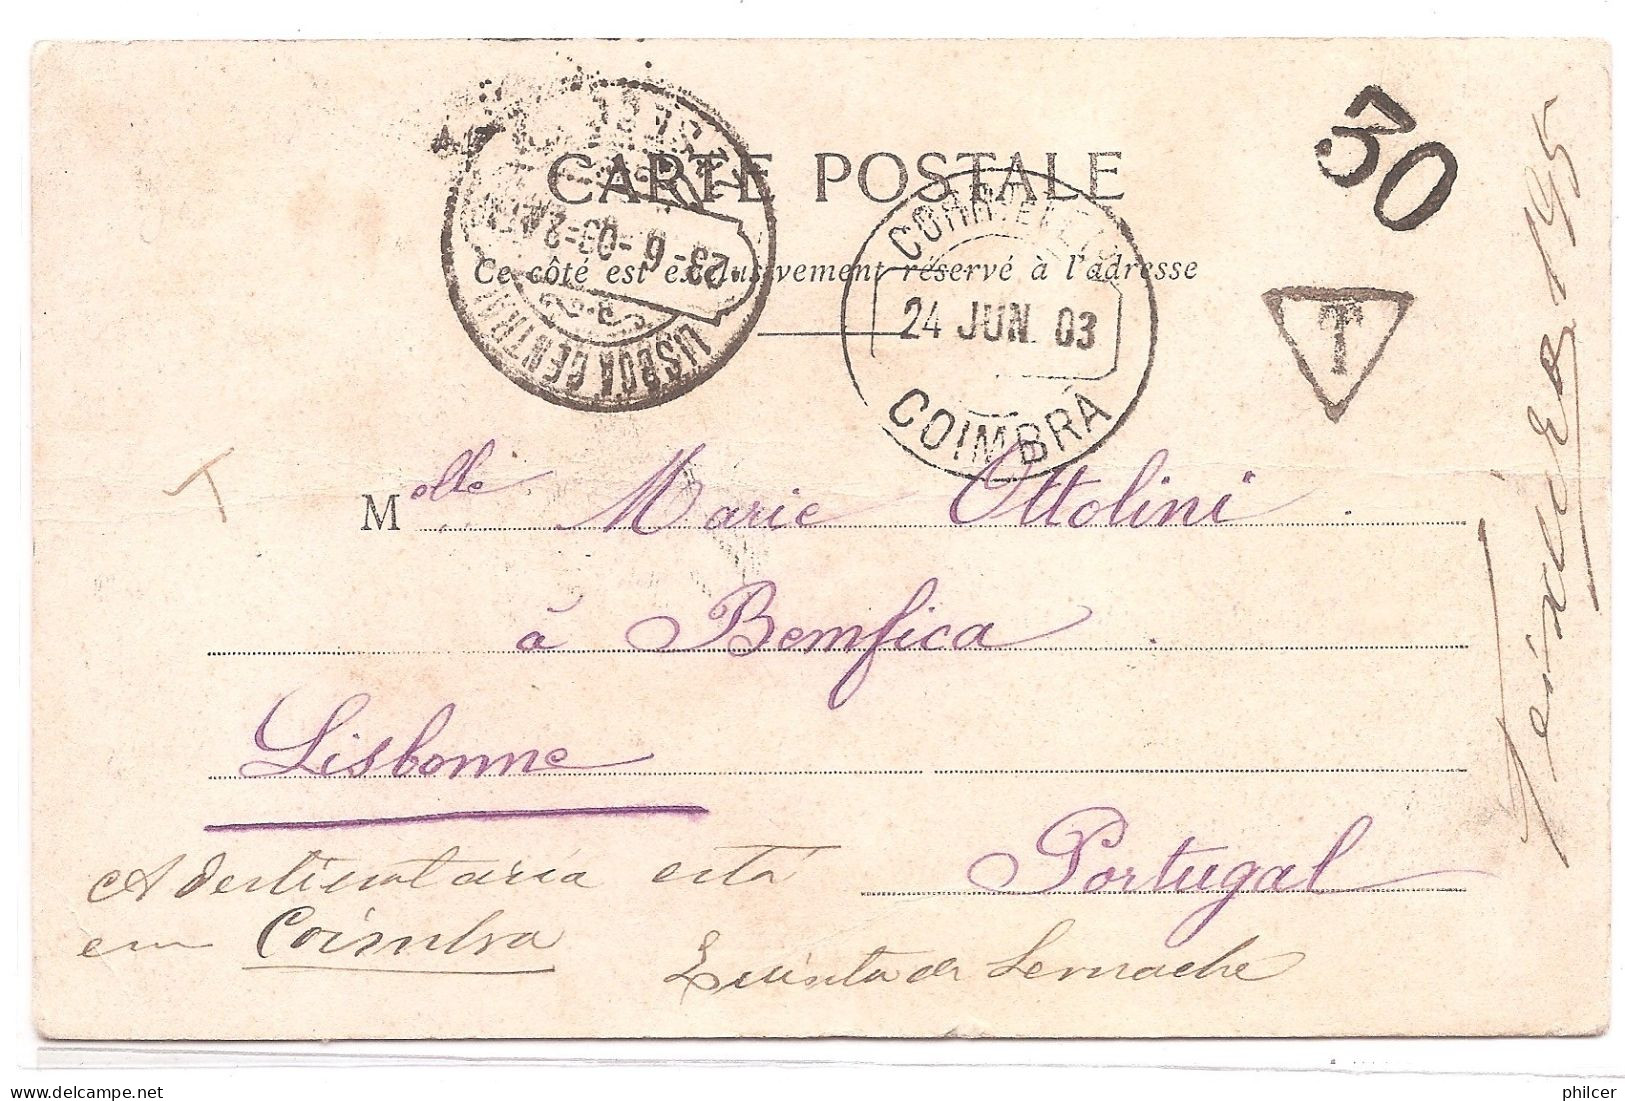 CARTE POSTALE
Ce côté est exclusivement réservé à l'adresse
LISBOA CENTRAL
23-6-03-2
24 JUN. 03
COIMBRA
30
T
T
Melle Marie Ottolini
à Bemfica
Lisbonne
Portugal
A destinataria está
em Coimbra
Quinta de Sernache
195
philcer